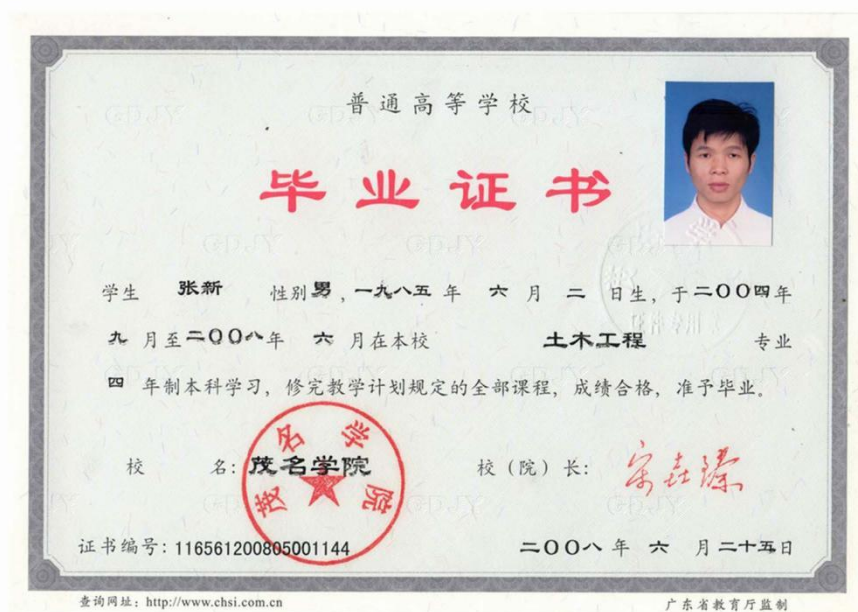 普通高等学校
毕业证书
学生 张新 性别男，一九八五年 六 月 二 日生，于二〇〇四年
九 月至二〇〇八年 六 月在本校 土木工程 专业
四 年制本科学习，修完教学计划规定的全部课程，成绩合格，准予毕业。
校 名：茂名学院 校（院）长：
茂名学院
证书编号：116561200805001144 二〇〇八 年 六 月二十五日
查询网址：http://www.chsi.com.cn 广东省教育厅监制